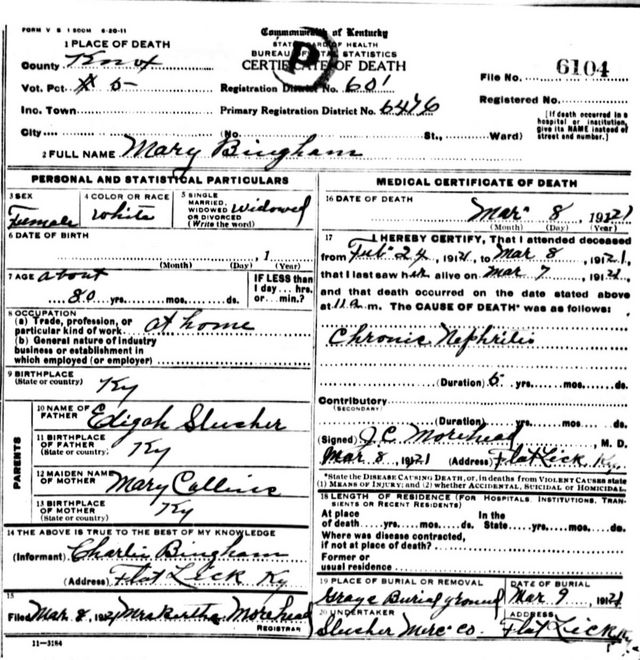 FORM V S 1 500M 6-20-11
Commonwealth of Kentucky
STATE BOARD OF HEALTH
BUREAU OF VITAL STATISTICS
CERTIFICATE OF DEATH
P
1 PLACE OF DEATH
County Knox
Vot. Pct. # 5
Inc. Town
City (No. St., Ward)
Registration District No. 601
Primary Registration District No. 6476
File No. 6104
Registered No.
[If death occurred in a hospital or institution, give its NAME instead of street and number.]
2 FULL NAME Mary Bingham
PERSONAL AND STATISTICAL PARTICULARS
3 SEX Female
4 COLOR OR RACE White
5 SINGLE MARRIED, WIDOWED OR DIVORCED (Write the word) Widowed
6 DATE OF BIRTH
, 1
(Month) (Day) (Year)
7 AGE about
80 yrs. mos. ds.
IF LESS than
1 day... hrs.
or... min.?
8 OCCUPATION
(a) Trade, profession, or
particular kind of work at home
(b) General nature of industry
business or establishment in
which employed (or employer)
9 BIRTHPLACE
(State or country) Ky
PARENTS
10 NAME OF
FATHER Edigah Slusher
11 BIRTHPLACE
OF FATHER
(State or country) Ky
12 MAIDEN NAME
OF MOTHER Mary Collins
13 BIRTHPLACE
OF MOTHER
(State or country) Ky
14 THE ABOVE IS TRUE TO THE BEST OF MY KNOWLEDGE
(Informant) Charlie Bingham
(Address) Flat Lick Ky
15
Filed Mar 8, 1921 Mrs Bertha Morehead
REGISTRAR
11-3184
MEDICAL CERTIFICATE OF DEATH
16 DATE OF DEATH
Mar 8, 1921
(Month) (Day) (Year)
17 I HEREBY CERTIFY, That I attended deceased
from Feb 24, 1921, to Mar 8, 1921,
that I last saw her alive on Mar 7, 1921,
and that death occurred on the date stated above
at 11 a.m. The CAUSE OF DEATH* was as follows:
Chronic Nephritis
(Duration) 5 yrs. mos. ds.
Contributory
(SECONDARY)
(Duration) yrs. mos. ds.
(Signed) J.C. Morehead, M. D.
Mar 8, 1921 (Address) Flat Lick, Ky.
*State the DISEASE CAUSING DEATH, or, in deaths from VIOLENT CAUSES state
(1) MEANS OF INJURY; and (2) whether ACCIDENTAL, SUICIDAL or HOMICIDAL.
18 LENGTH OF RESIDENCE (FOR HOSPITALS, INSTITUTIONS, TRANSIENTS OR RECENT RESIDENTS)
At place In the
of death yrs. mos. ds. State yrs. mos. ds.
Where was disease contracted,
if not at place of death?
Former or
usual residence
19 PLACE OF BURIAL OR REMOVAL DATE OF BURIAL
Grays Burial ground Mar 9, 1921
20 UNDERTAKER ADDRESS
Slusher Merc Co. Flat Lick Ky